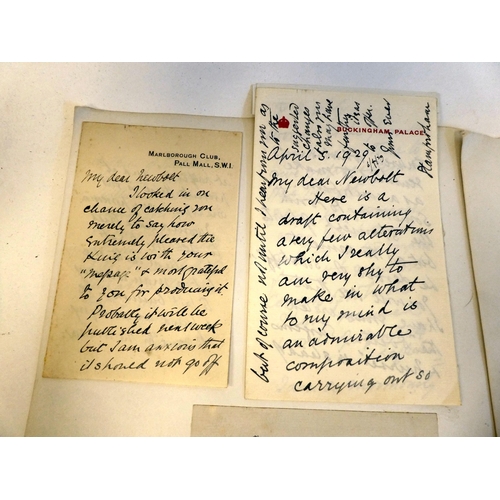 MARLBOROUGH CLUB,
PALL MALL, S.W.1.
My dear Newbolt
I looked in on
chance of catching you
merely to say how
extremely pleased the
King is with your
"message" & most grateful
to you for producing it
Probably it will be
published next week
but I am anxious that
it should not go off
BUCKINGHAM PALACE
April 5. 1929
My dear Newbolt
Here is a
draft containing
a very few alterations
which I really
am very shy to
make in what
to my mind is
an admirable
composition
carrying out so
but of course not until I hear from you as
to the
suggested
changes
Yours ever